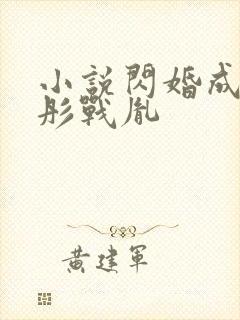 小說閃婚成
彤戰胤
黃建軍